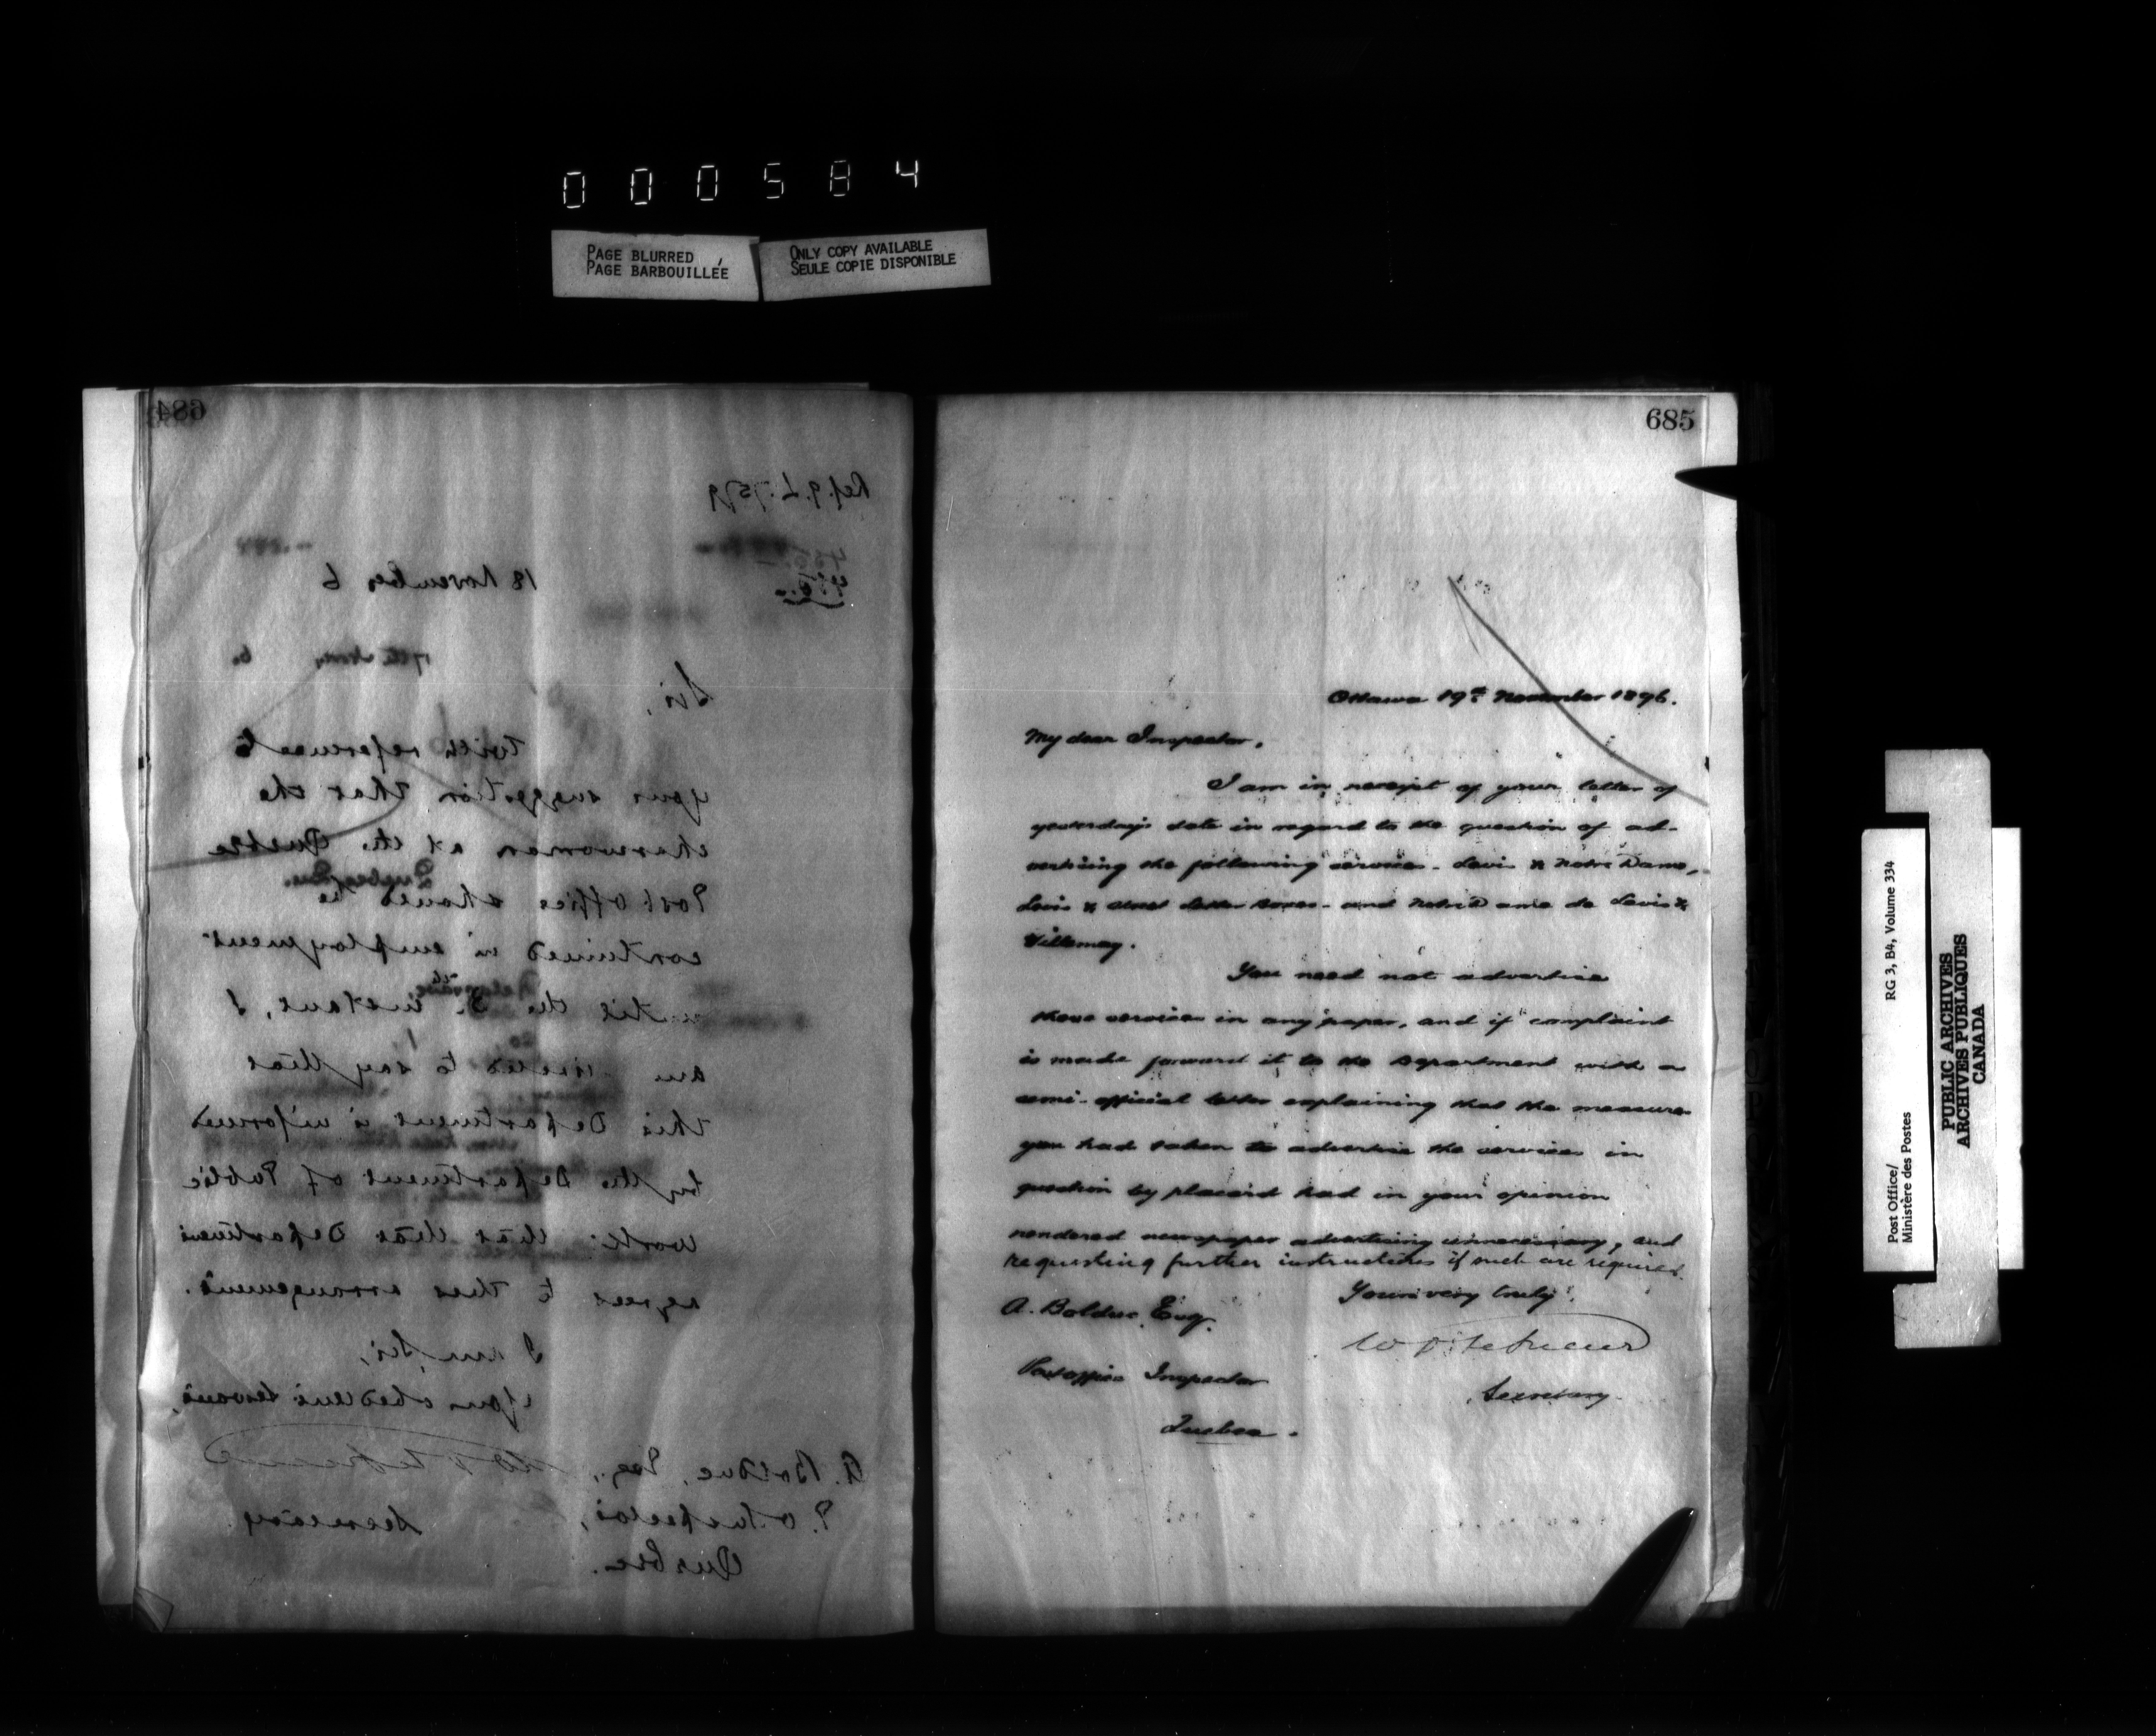 000584
PAGE BLURRED
PAGE BARBOUILLÉE
ONLY COPY AVAILABLE
SEULE COPIE DISPONIBLE
684
Ref. 9. L. 7579
18 November 6
Sir,
With reference to
your suggestion that the
charwoman at the Quebec
Post Office should be
continued in employment
until the instant, I
am to say that
this Department is informed
by the Department of Public
Works that that Department
agrees to this arrangement.
I am, Sir,
Your obedient Servant,
A. Bolduc, Esq.,
P.O. Inspector,
Secretary
Quebec.
685
Ottawa 19th November 1896.
My dear Inspector,
I am in receipt of your letter of
yesterday's date in regard to the question of ad-
vertising the following services - Levis & Notre Dame,
Levis & street letter boxes - and Notre Dame de Levis &
Villemay.
You need not advertise
these services in any paper, and if complaint
is made forward it to the Department with a
semi-official letter explaining that the measures
you had taken to advertise the services in
question by placard had in your opinion
rendered newspaper advertising unnecessary, and
requesting further instructions if such are required.
Yours very truly,
A. Bolduc, Esq.
Secretary.
Postoffice Inspector
Quebec.
Post Office/
Ministère des Postes
RG 3, B4, Volume 334
PUBLIC ARCHIVES
ARCHIVES PUBLIQUES
CANADA